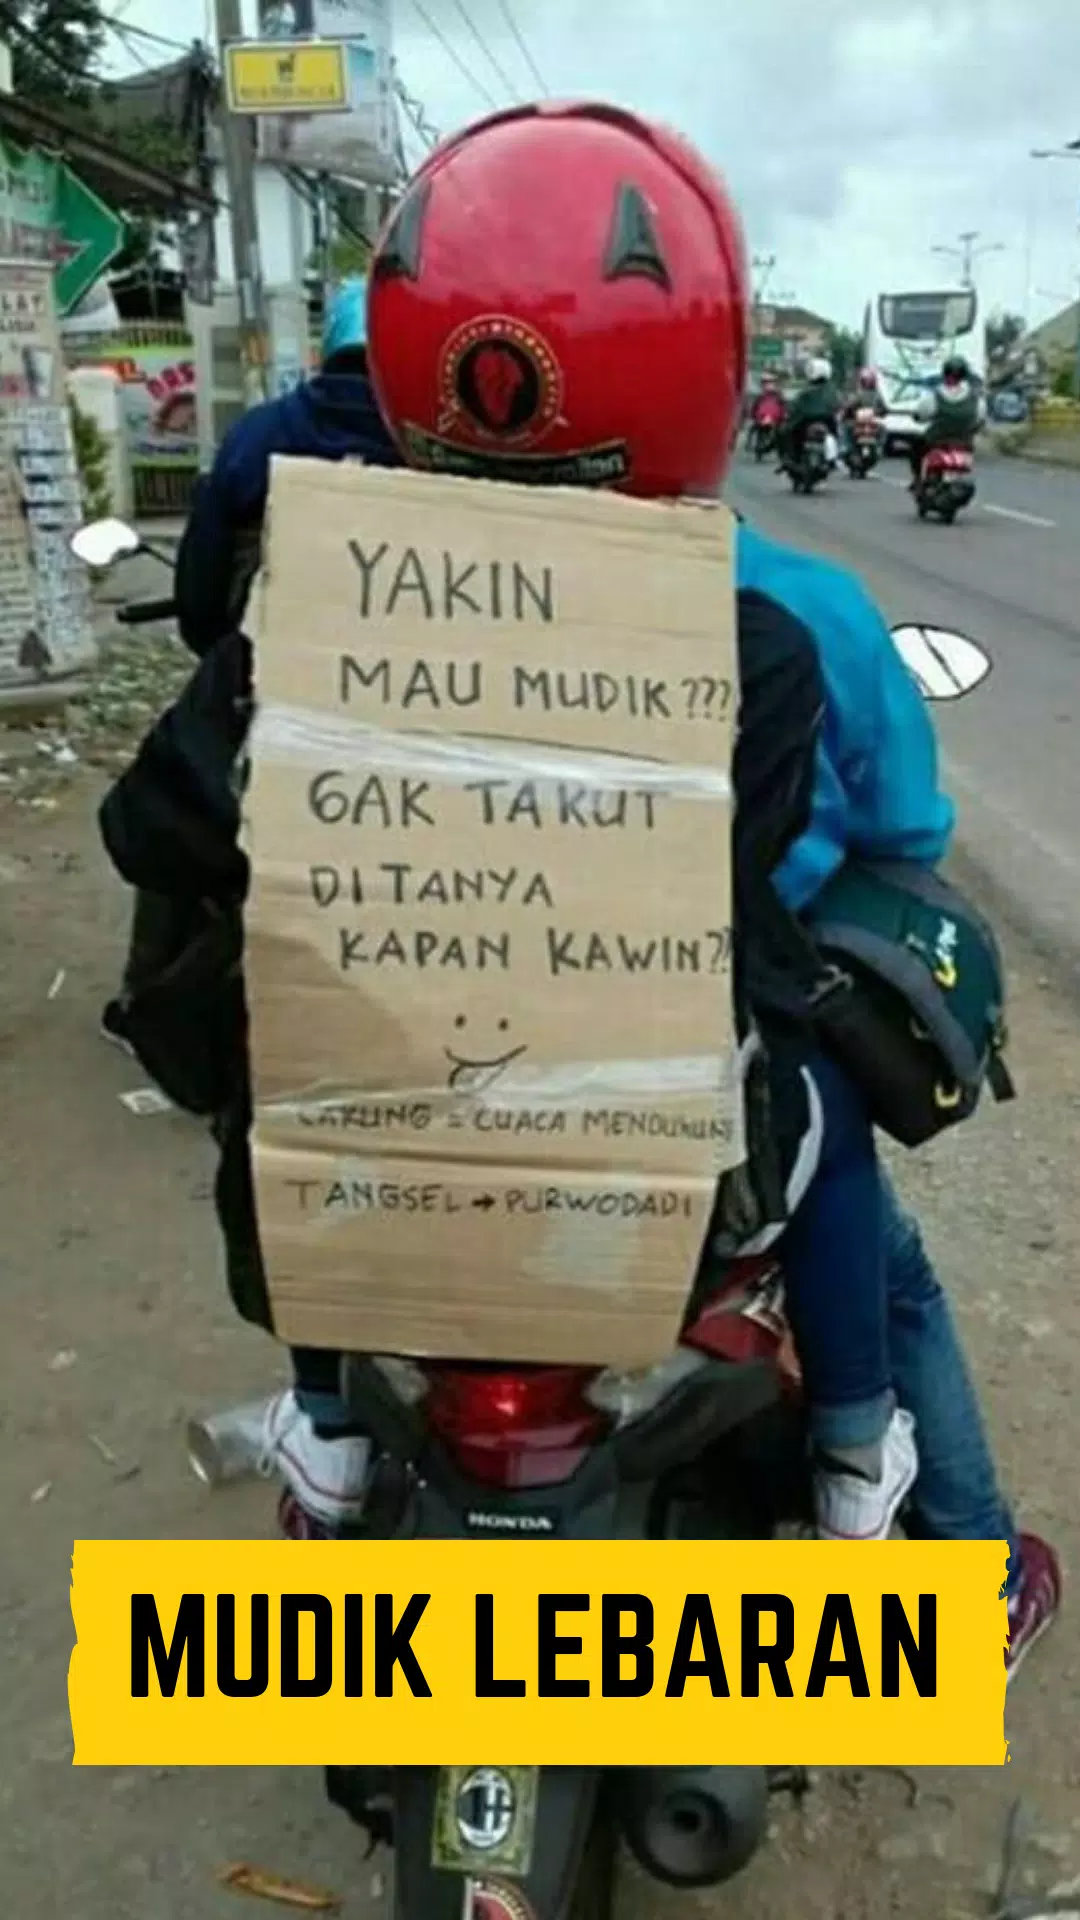 YAKIN
MAU MUDIK???
GAK TAKUT
DITANYA
KAPAN KAWIN?!
= CUACA MENDUKUNG
TANGSEL → PURWODADI
HONDA
MUDIK LEBARAN